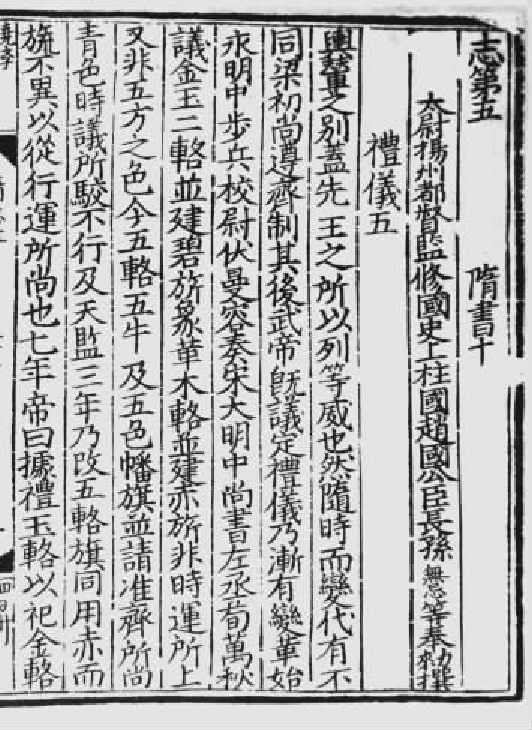 志第五 隋書十
太尉揚州都督監修國史上柱國趙國公臣長孫無忌等奉勑撰
禮儀五
輿輦之別蓋先王之所以列等威也然隨時而變代有不
同梁初尚遵齊制其後武帝旣議定禮儀乃漸有變革始
永明中步兵校尉伏曼容奏宋大明中尚書左丞荀萬秋
議金玉二輅並建碧旂象革木輅並建赤旂非時運所上
又非五方之色今五輅五牛及五色幡旗並請准齊所尚
青色時議所駮不行及天監三年乃改五輅旗同用赤而
旒不異以從行運所尚也七年帝曰據禮玉輅以祀金輅